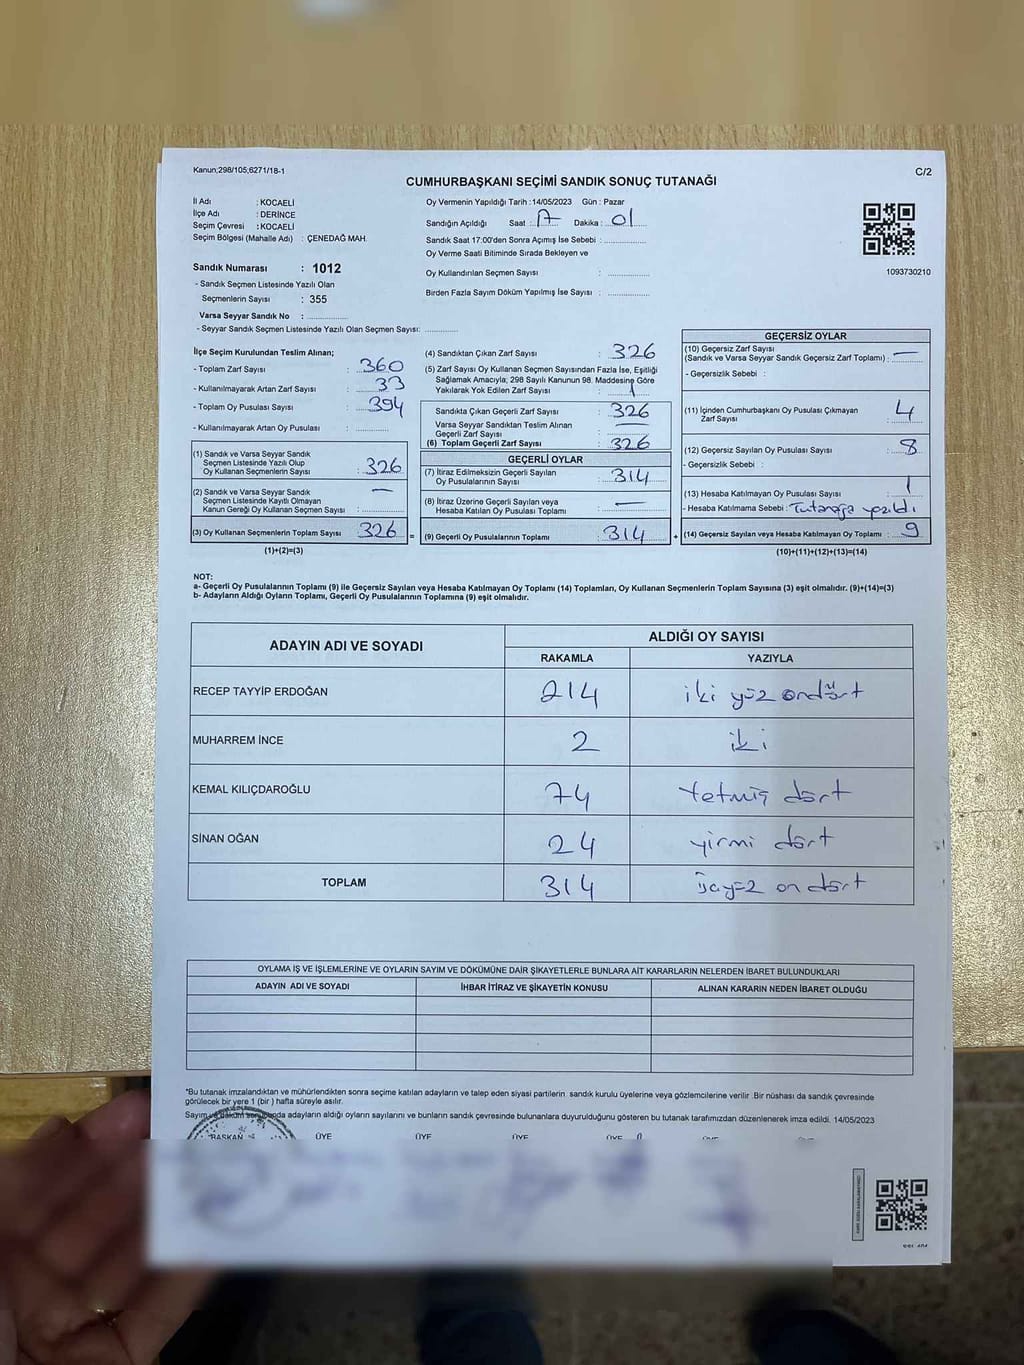 Kanun;298/105;6271/18-1
C/2
CUMHURBAŞKANI SEÇİMİ SANDIK SONUÇ TUTANAĞI
İl Adı : KOCAELİ
İlçe Adı : DERİNCE
Seçim Çevresi : KOCAELİ
Seçim Bölgesi (Mahalle Adı) : ÇENEDAĞ MAH.
Sandık Numarası : 1012
- Sandık Seçmen Listesinde Yazılı Olan
Seçmenlerin Sayısı : 355
Varsa Seyyar Sandık No :
- Seyyar Sandık Seçmen Listesinde Yazılı Olan Seçmen Sayısı:
Oy Vermenin Yapıldığı Tarih :14/05/2023 Gün : Pazar
Sandığın Açıldığı Saat : 17 Dakika : 01
Sandık Saat 17:00'den Sonra Açımış İse Sebebi :
Oy Verme Saati Bitiminde Sırada Bekleyen ve
Oy Kullandırılan Seçmen Sayısı :
Birden Fazla Sayım Döküm Yapılmış İse Sayısı :
1093730210
İlçe Seçim Kurulundan Teslim Alınan;
- Toplam Zarf Sayısı : 360
- Kullanılmayarak Artan Zarf Sayısı : 33
- Toplam Oy Pusulası Sayısı : 394
- Kullanılmayarak Artan Oy Pusulası :
(1) Sandık ve Varsa Seyyar Sandık
Seçmen Listesinde Yazılı Olup
Oy Kullanan Seçmenlerin Sayısı : 326
(2) Sandık ve Varsa Seyyar Sandık
Seçmen Listesinde Kayıtlı Olmayan
Kanun Gereği Oy Kullanan Seçmen Sayısı : —
(3) Oy Kullanan Seçmenlerin Toplam Sayısı : 326
(1)+(2)=(3)
=
(4) Sandıktan Çıkan Zarf Sayısı : 326
(5) Zarf Sayısı Oy Kullanan Seçmen Sayısından Fazla İse, Eşitliği
Sağlamak Amacıyla; 298 Sayılı Kanunun 98. Maddesine Göre
Yakılarak Yok Edilen Zarf Sayısı :
Sandıkta Çıkan Geçerli Zarf Sayısı : 326
Varsa Seyyar Sandıktan Teslim Alınan
Geçerli Zarf Sayısı : —
(6) Toplam Geçerli Zarf Sayısı : 326
GEÇERLİ OYLAR
(7) İtiraz Edilmeksizin Geçerli Sayılan
Oy Pusulalarının Sayısı : 314
(8) İtiraz Üzerine Geçerli Sayılan veya
Hesaba Katılan Oy Pusulası Toplamı : —
(9) Geçerli Oy Pusulalarının Toplamı : 314
+
GEÇERSİZ OYLAR
(10) Geçersiz Zarf Sayısı
(Sandık ve Varsa Seyyar Sandık Geçersiz Zarf Toplamı) : —
- Geçersizlik Sebebi :
(11) İçinden Cumhurbaşkanı Oy Pusulası Çıkmayan
Zarf Sayısı : 4
(12) Geçersiz Sayılan Oy Pusulası Sayısı : 8
- Geçersizlik Sebebi :
(13) Hesaba Katılmayan Oy Pusulası Sayısı : 1
- Hesaba Katılmama Sebebi : Tutanağa yazıldı
(14) Geçersiz Sayılan veya Hesaba Katılmayan Oy Toplamı : 9
(10)+(11)+(12)+(13)=(14)
NOT:
a- Geçerli Oy Pusulalarının Toplamı (9) ile Geçersiz Sayılan veya Hesaba Katılmayan Oy Toplamı (14) Toplamları, Oy Kullanan Seçmenlerin Toplam Sayısına (3) eşit olmalıdır. (9)+(14)=(3)
b- Adayların Aldığı Oyların Toplamı, Geçerli Oy Pusulalarının Toplamına (9) eşit olmalıdır.
ADAYIN ADI VE SOYADI
ALDIĞI OY SAYISI
RAKAMLA YAZIYLA
RECEP TAYYİP ERDOĞAN 214 iki yüz ondört
MUHARREM İNCE 2 iki
KEMAL KILIÇDAROĞLU 74 Yetmiş dört
SİNAN OĞAN 24 yirmi dört
TOPLAM 314 üçyüz on dört
OYLAMA İŞ VE İŞLEMLERİNE VE OYLARIN SAYIM VE DÖKÜMÜNE DAİR ŞİKAYETLERLE BUNLARA AİT KARARLARIN NELERDEN İBARET BULUNDUKLARI
ADAYIN ADI VE SOYADI İHBAR İTİRAZ VE ŞİKAYETİN KONUSU ALINAN KARARIN NEDEN İBARET OLDUĞU
*Bu tutanak imzalandıktan ve mühürlendikten sonra seçime katılan adayların ve talep eden siyasi partilerin sandık kurulu üyelerine veya gözlemcilerine verilir .Bir nüshası da sandık çevresinde
görülecek bir yere 1 (bir ) hafta süreyle asılır.
Sayım ve döküm sonunda adayların aldığı oyların sayılarını ve bunların sandık çevresinde bulunanlara duyurulduğunu gösteren bu tutanak tarafımızdan düzenlenerek imza edildi. 14/05/2023
BAŞKAN ÜYE ÜYE ÜYE ÜYE ÜYE